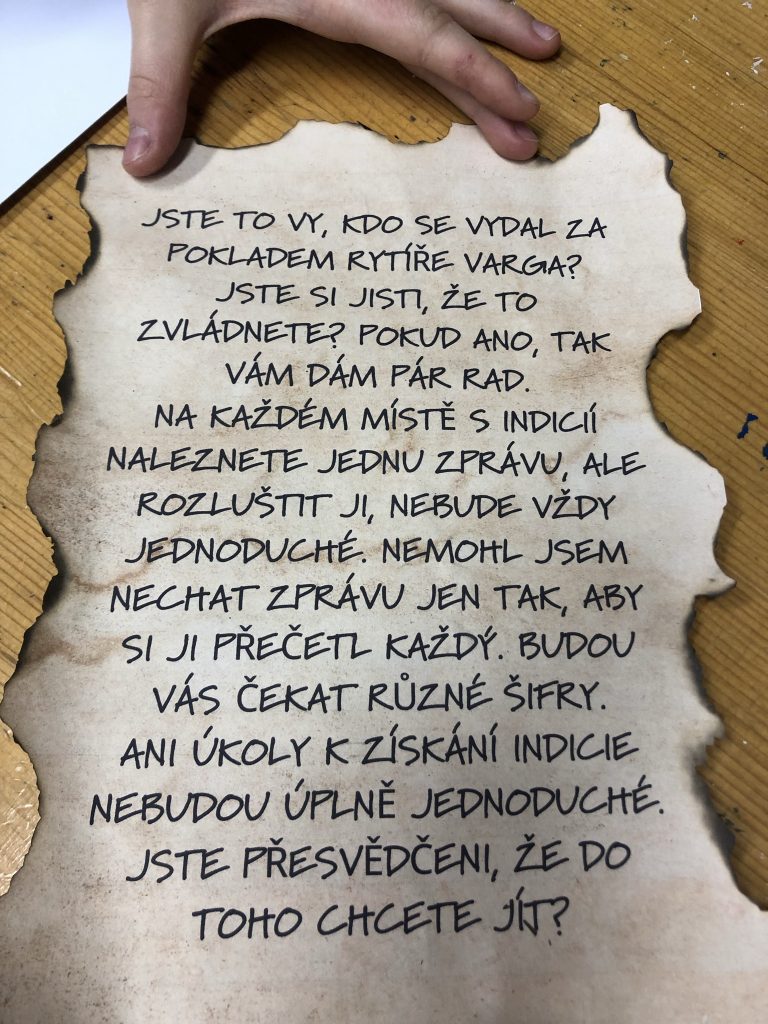 JSTE TO VY, KDO SE VYDAL ZA
POKLADEM RYTÍŘE VARGA?
JSTE SI JISTI, ŽE TO
ZVLÁDNETE? POKUD ANO, TAK
VÁM DÁM PÁR RAD.
NA KAŽDÉM MÍSTĚ S INDICIÍ
NALEZNETE JEDNU ZPRÁVU, ALE
ROZLUŠTIT JI, NEBUDE VŽDY
JEDNODUCHÉ. NEMOHL JSEM
NECHAT ZPRÁVU JEN TAK, ABY
SI JI PŘEČETL KAŽDÝ. BUDOU
VÁS ČEKAT RŮZNÉ ŠIFRY.
ANI ÚKOLY K ZÍSKÁNÍ INDICIE
NEBUDOU ÚPLNĚ JEDNODUCHÉ.
JSTE PŘESVĚDČENI, ŽE DO
TOHO CHCETE JÍT?